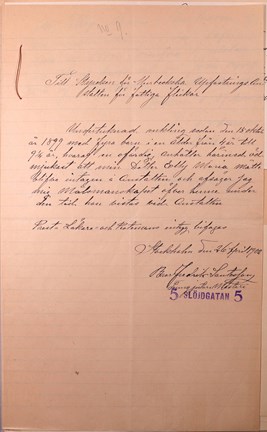 No 9.
Till Styrelsen för Murbeckska Uppfostrings An-
stalten för fattige flickor
Undertecknad, enkling sedan den 18 oktober
år 1899 med fyra barn i en ålder från 4 år till
9½ år, hvaraf en ofärdig, anhåller härmed öd-
mjukast att min Dotter Elly Maria måtte
blifva intagen i Anstalten och afsäger jag
mig Målsmanskapet öfver henne under
den tid hon vistas vid Anstalten
Prest, Läkare och betyg bifogas
Stockholm den 26 April 1900
Fredrik
5 SLÖJDGATAN 5